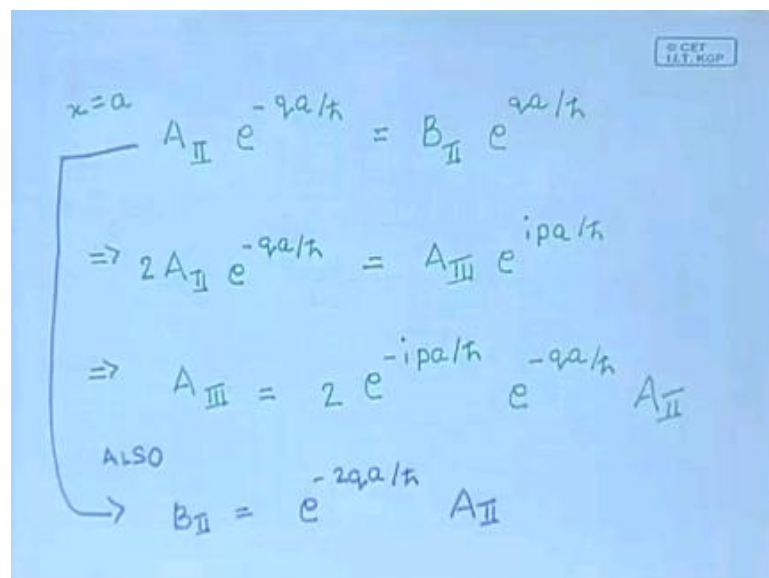 © CET
I.I.T. KGP
x=a
A_II e^{-qa/ħ} = B_II e^{qa/ħ}
=> 2 A_II e^{-qa/ħ} = A_III e^{ipa/ħ}
=> A_III = 2 e^{-ipa/ħ} e^{-qa/ħ} A_II
ALSO
→ B_II = e^{-2qa/ħ} A_II